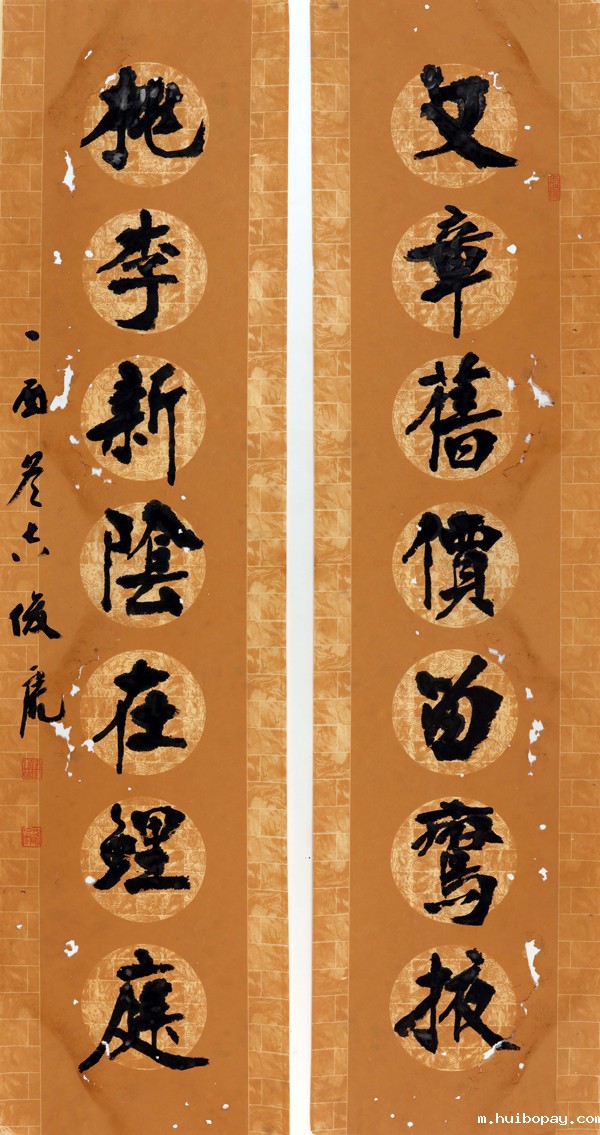 文章舊價留鸞掖
桃李新陰在鯉庭
m.huibopay.com